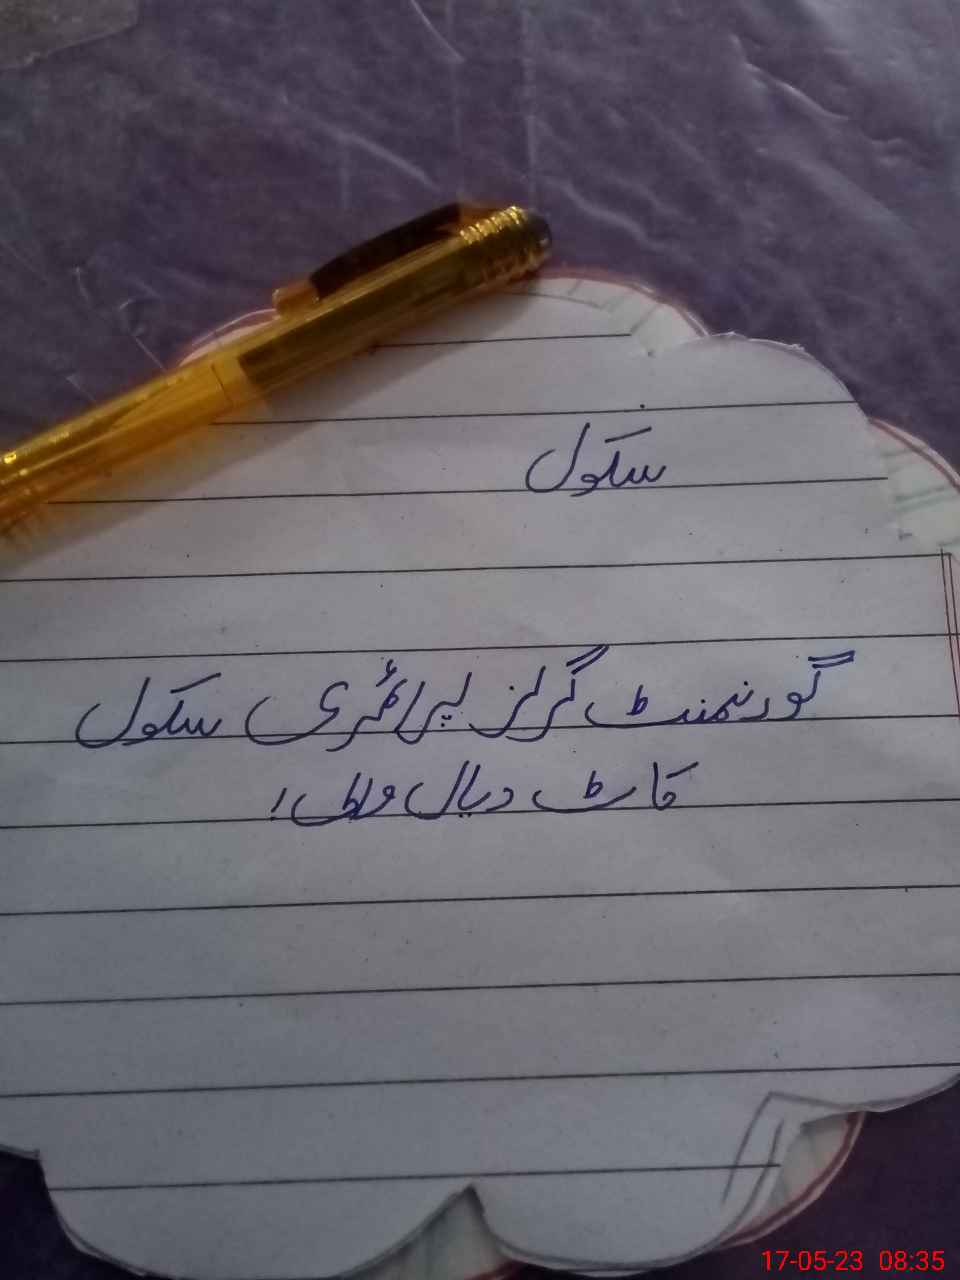 سکول
گورنمنٹ گرلز پرائمری سکول
دیال
17-05-23 08:35